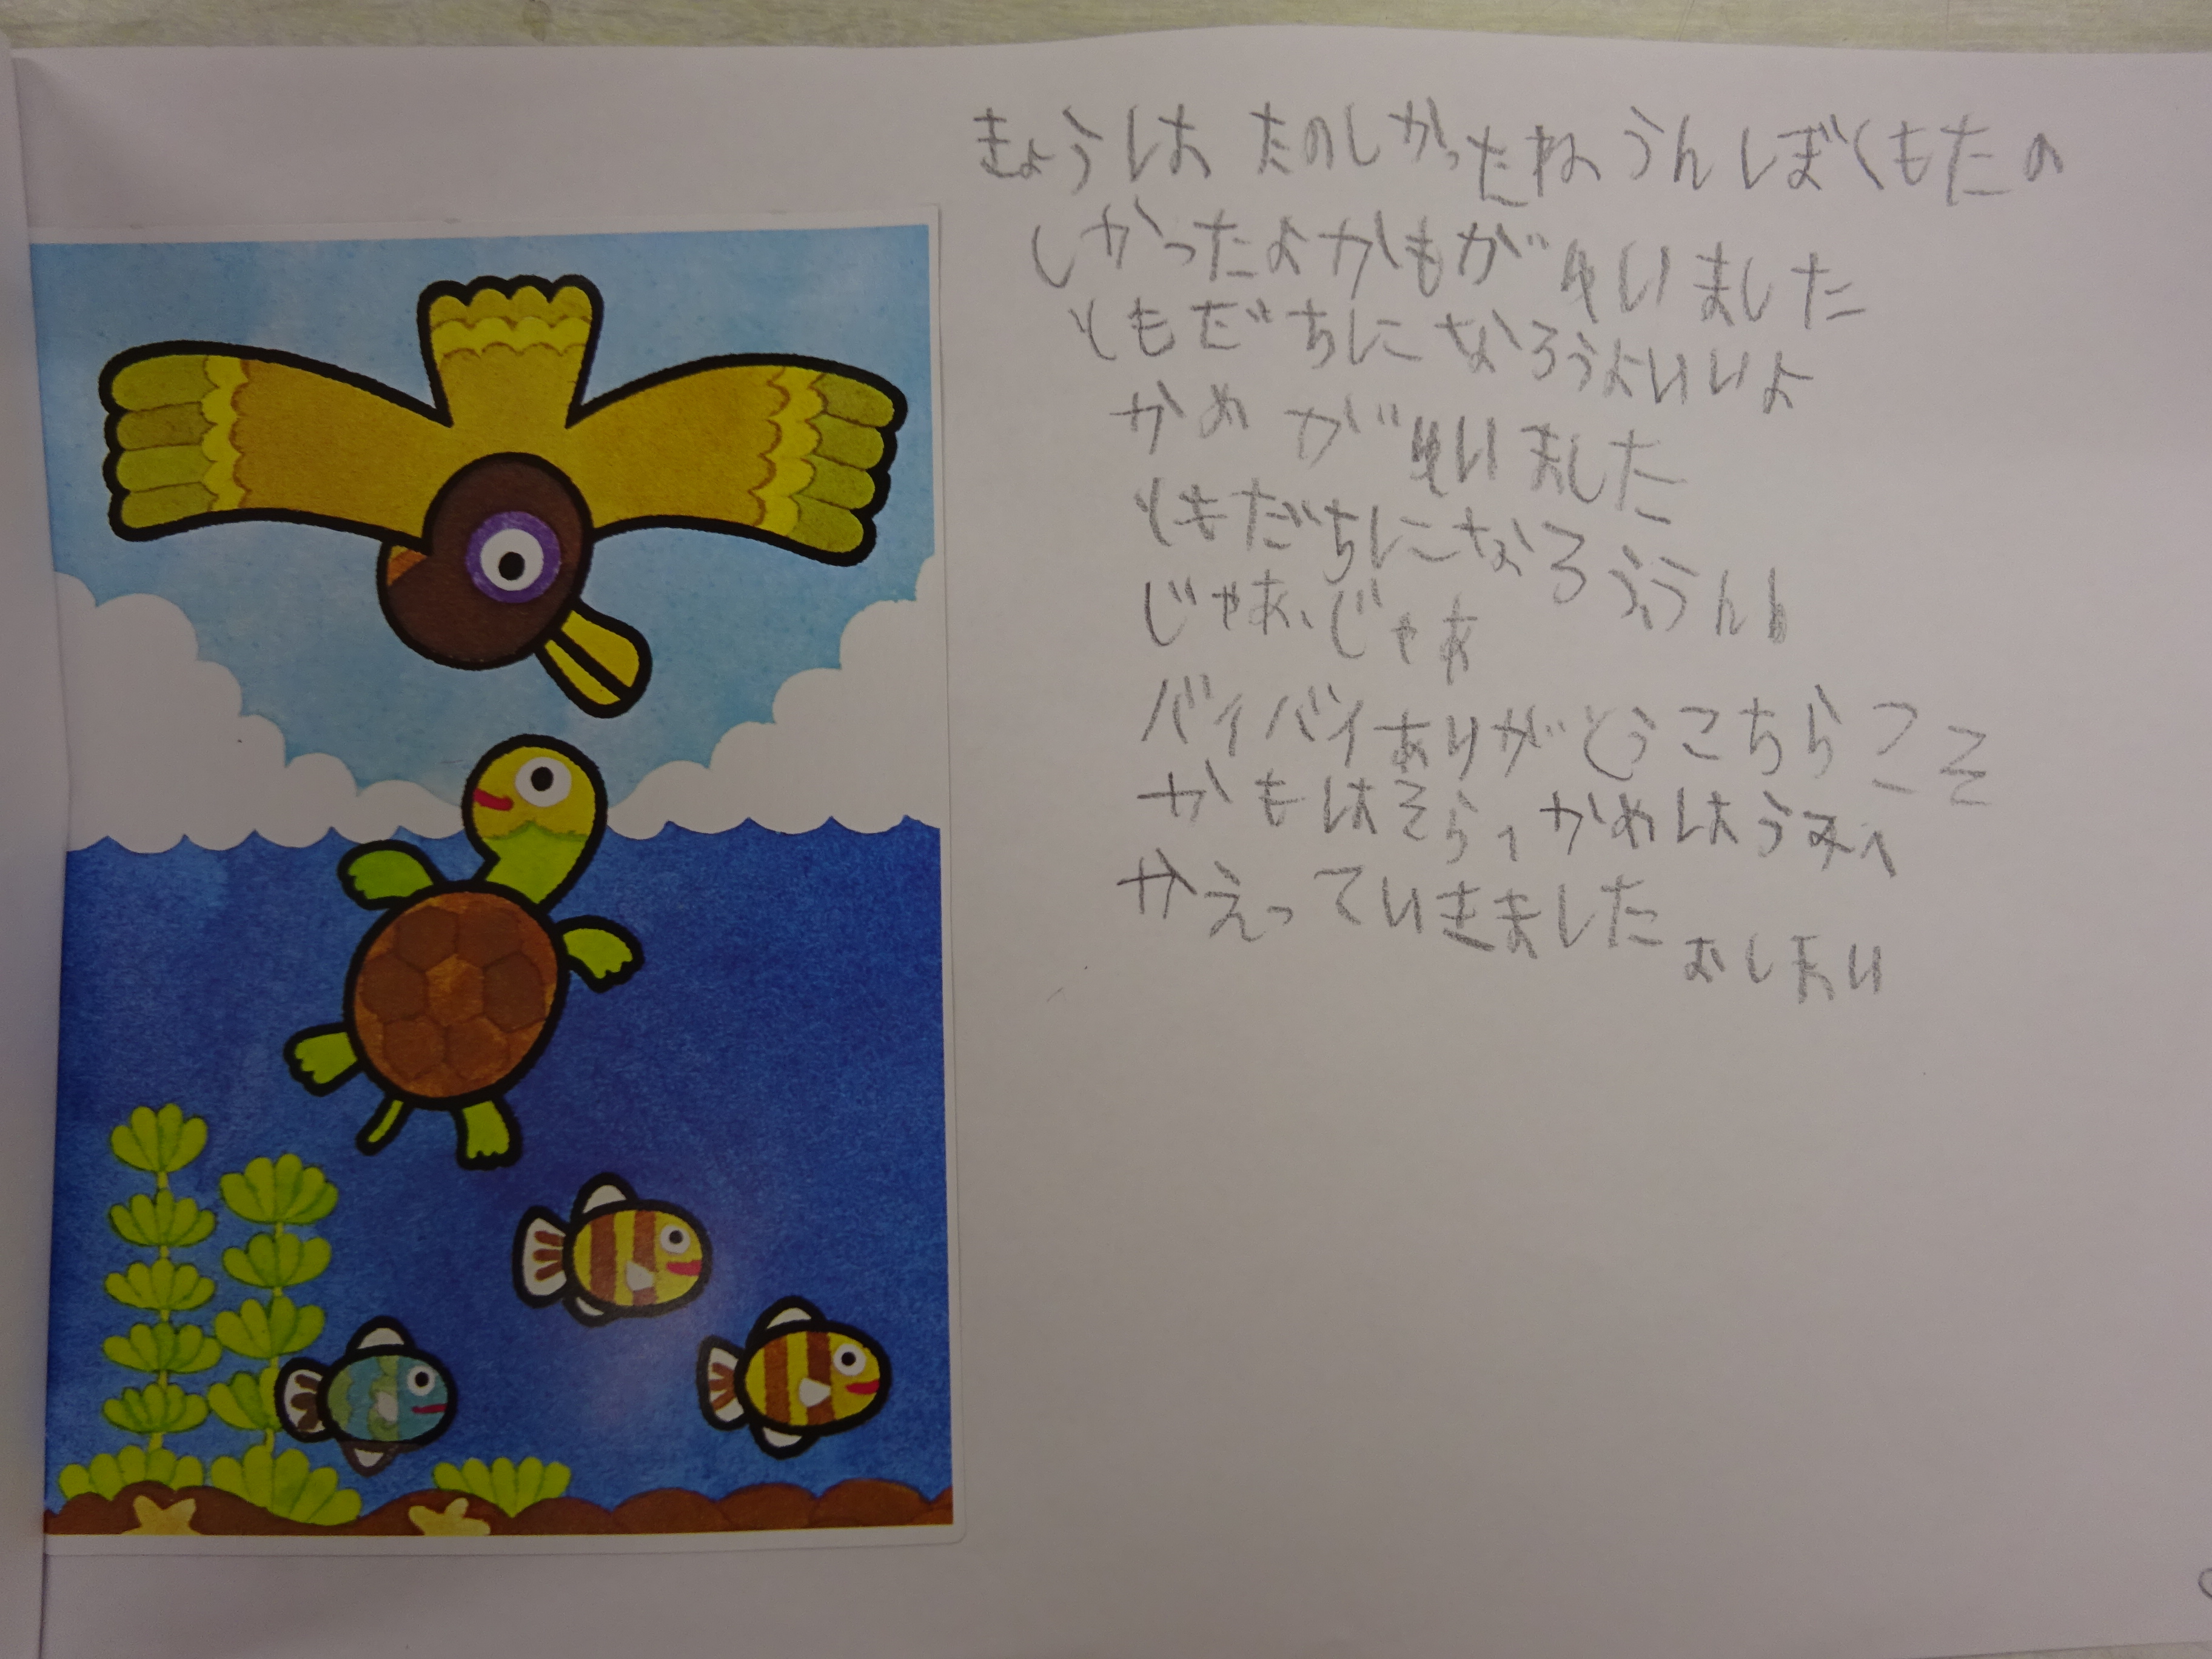 きょうは たのしかったね うん ぼくもたの
しかったよ かもがゆいました
ともだちに なろうよ いいよ
かめ がゆいました
ともだちになろう うん
じゃあ、じゃあ
バイバイ ありがとう こちらこそ
かもはそらへ かめはうみへ
かえっていきました
おしまい